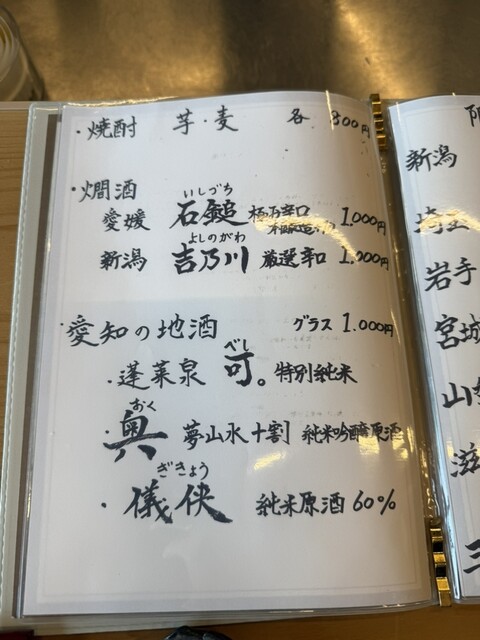 ・焼酎 芋・麦 各 800円
・燗酒
いしづち
愛媛 石鎚 極乃辛口 1,000円
よしのがわ
新潟 吉乃川 厳選辛口 1,000円
・愛知の地酒 グラス 1,000円
べし
・蓬莱泉 可。特別純米
おく
・奥 夢山水十割 純米吟醸原酒
ぎきょう
・儀侠 純米原酒 60%
新潟
埼玉
岩手
宮城
山
滋
三